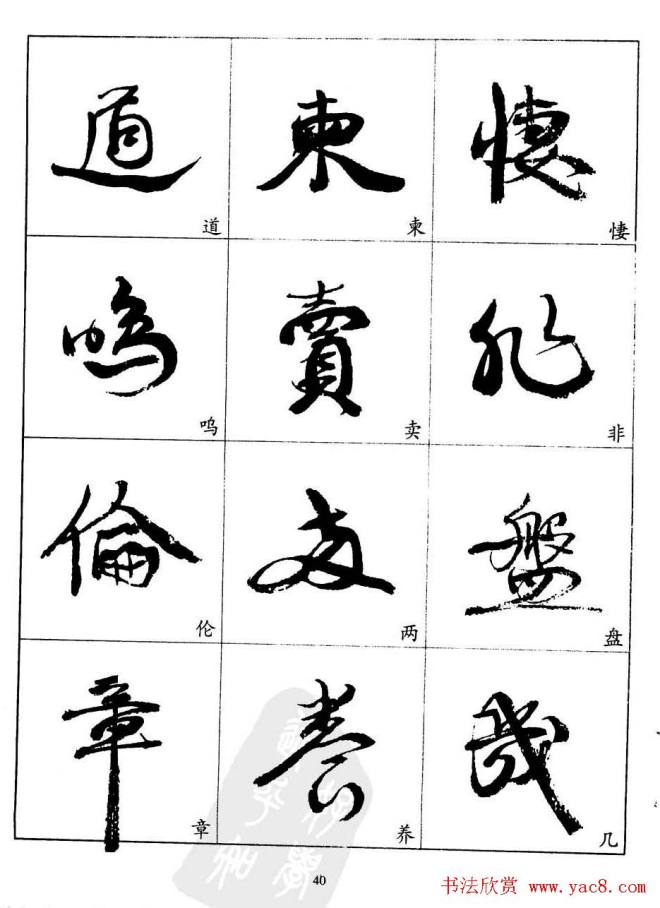 道 柬 悽
道 柬 悽
嗚 賣 非
呜 卖 非
倫 兩 盤
伦 两 盘
章 養 幾
章 养 几
40
书法欣赏 www.yac8.com